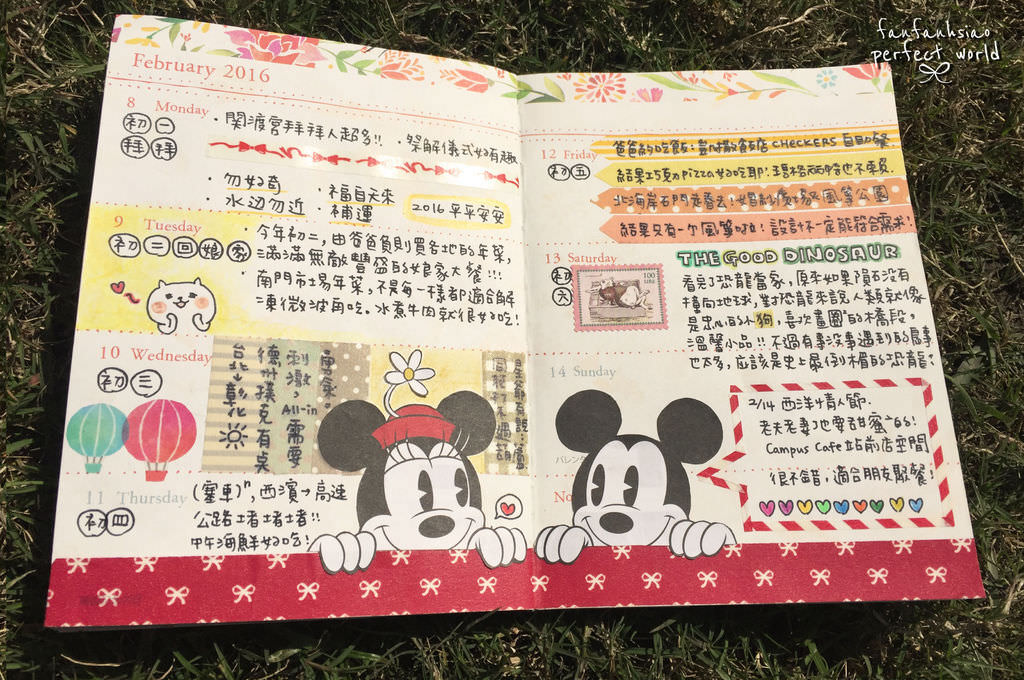 fanfanhsiao
perfect world
February 2016
8 Monday
初一
拜拜
・関渡宮拜拜人超多!! ・祭解儀式好有趣
・勿好奇 ・福自天來
・水边勿近 ・補運
2016 平平安安
9 Tuesday
初二回娘家
・今年初二，由爸爸負則買各地的年菜，
滿滿無敵豐盛的娘家大餐!!!
・南門市場年菜，不是每一樣都適合解
凍微波再吃。水煮牛肉就很好吃！
10 Wednesday
初三
台北→彰化
德州撲克有桌
刺激，All-in 需要
勇氣。
11 Thursday
初四
(塞車)", 西濱→高速
公路堵者堵者堵者!!
中午海鮮好吃！
12 Friday
初五
爸爸約吃飯：
CHECKERS 自助餐
結果巧克力pizza好吃耶！
北海岸石門走春去！
風箏公園
結果只有一个風箏啦！設計不一定能符合需求！
13 Saturday
初六
100
THE GOOD DINOSAUR
看完了恐龍當家，原來如果隕石沒有
撞向地球，對恐龍來說人類就像
是忠心的小狗，喜次畫圈的橋段，
溫馨小品!! 不過有事沒事遇到的鳥事
也太多，应該是史上最倒楣的恐龍？
14 Sunday
バレンタ
No
2/14 西洋情人節.
老夫老妻也要甜蜜66!
Campus Cafe 站前店空間
很不錯，適合朋友聚餐！